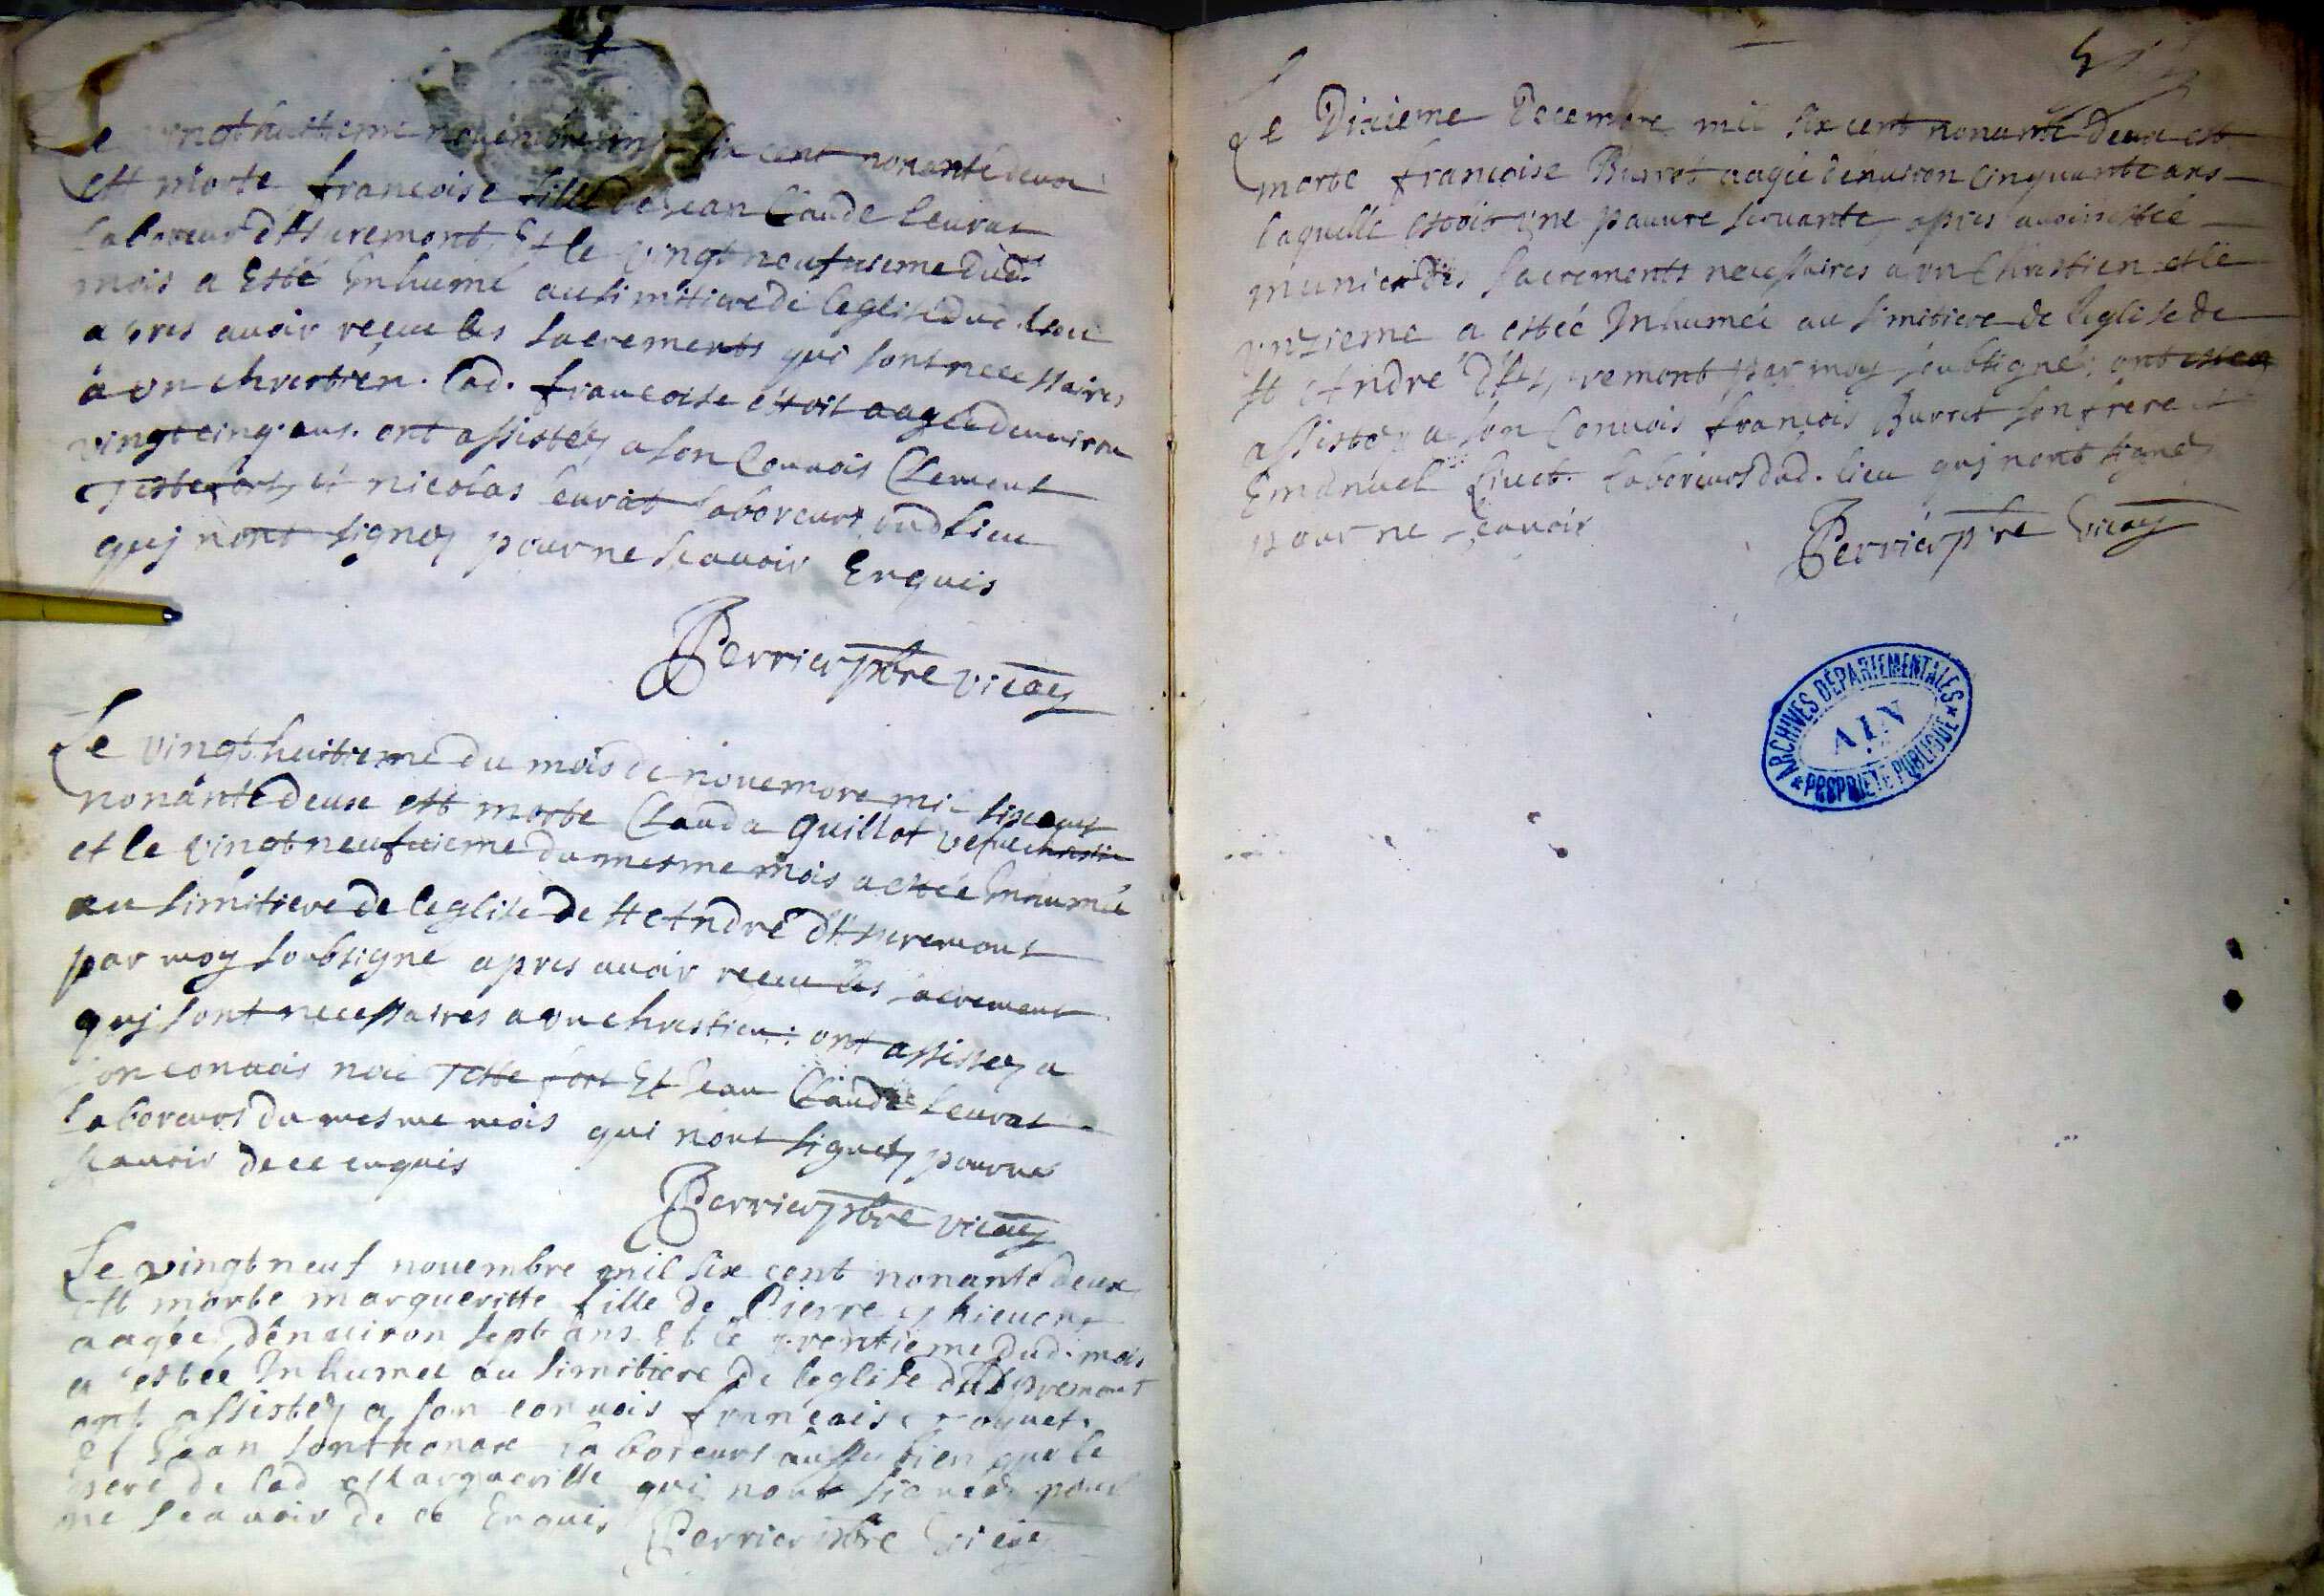 Le vingthuitieme novembre mil six cent nonante deux
est morte francoise fille de Jean Claude leurat
laboreur Et le vingt neufuieme dud.
mois a Esté Inhumé au simitiere de leglise dud. lieu
apres avoir receu les sacrements qui sont necessaires
a un chrestien. lad. francoise estoit aagée denuiron
vingt cinq ans. ont assistez a son Convois Clement
Testefort et nicolas leurat laboreurs dud lieu
quj nont signez pour ne scauoir Enquis
Perrier pbre vicaire
Le vingt huitieme du mois de nouembre mil six cent
nonante deux est morte Clauda Guillot
et le vingt neufuieme du mesme mois a estée Inhumée
au simitiere de leglise de st Andre
par moy soubsigné apres auoir receu les sacrement
quj sont necessaires a un chrestien: ont assistez a
son conuois Teste fort Et Jean Claude leurat
laboreurs du mesme mois qui nont signez pour ne
scauoir de ce enquis
Perrier pbre vicaire
Le vingt neuf nouembre mil six cent nonante deux
est morte margueritte fille de Pierre
aagée denuiron sept ans Et le trentieme dud. mois
a estée Inhumee au simitiere de leglise
ont assistez a son conuois francois
et Jean Sonthonax laboreurs aussy bien que le
pere de lad Margueritte qui nont signez pour
ne scauoir de ce Enquis Perrier pbre vicaire
Le Dixieme Decembre mil six cent nonante deux est
morte françoise Burret aagée denuiron cinquante ans
laquelle estoit une pauure seruante apres auoir estée
munie des sacrements necessaires a un Chrestien et le
unzieme a estée Inhumée au simitiere de leglise de
st Andre par moy soubsigné; ont
assistez a son Conuois francois Burret son frere et
Emanuel laboreurs dud. lieu quj nont signez
pour ne scauoir
Perrier pbre vicaire
ARCHIVES DÉPARTEMENTALES
AIN
PROPRIÉTÉ PUBLIQUE